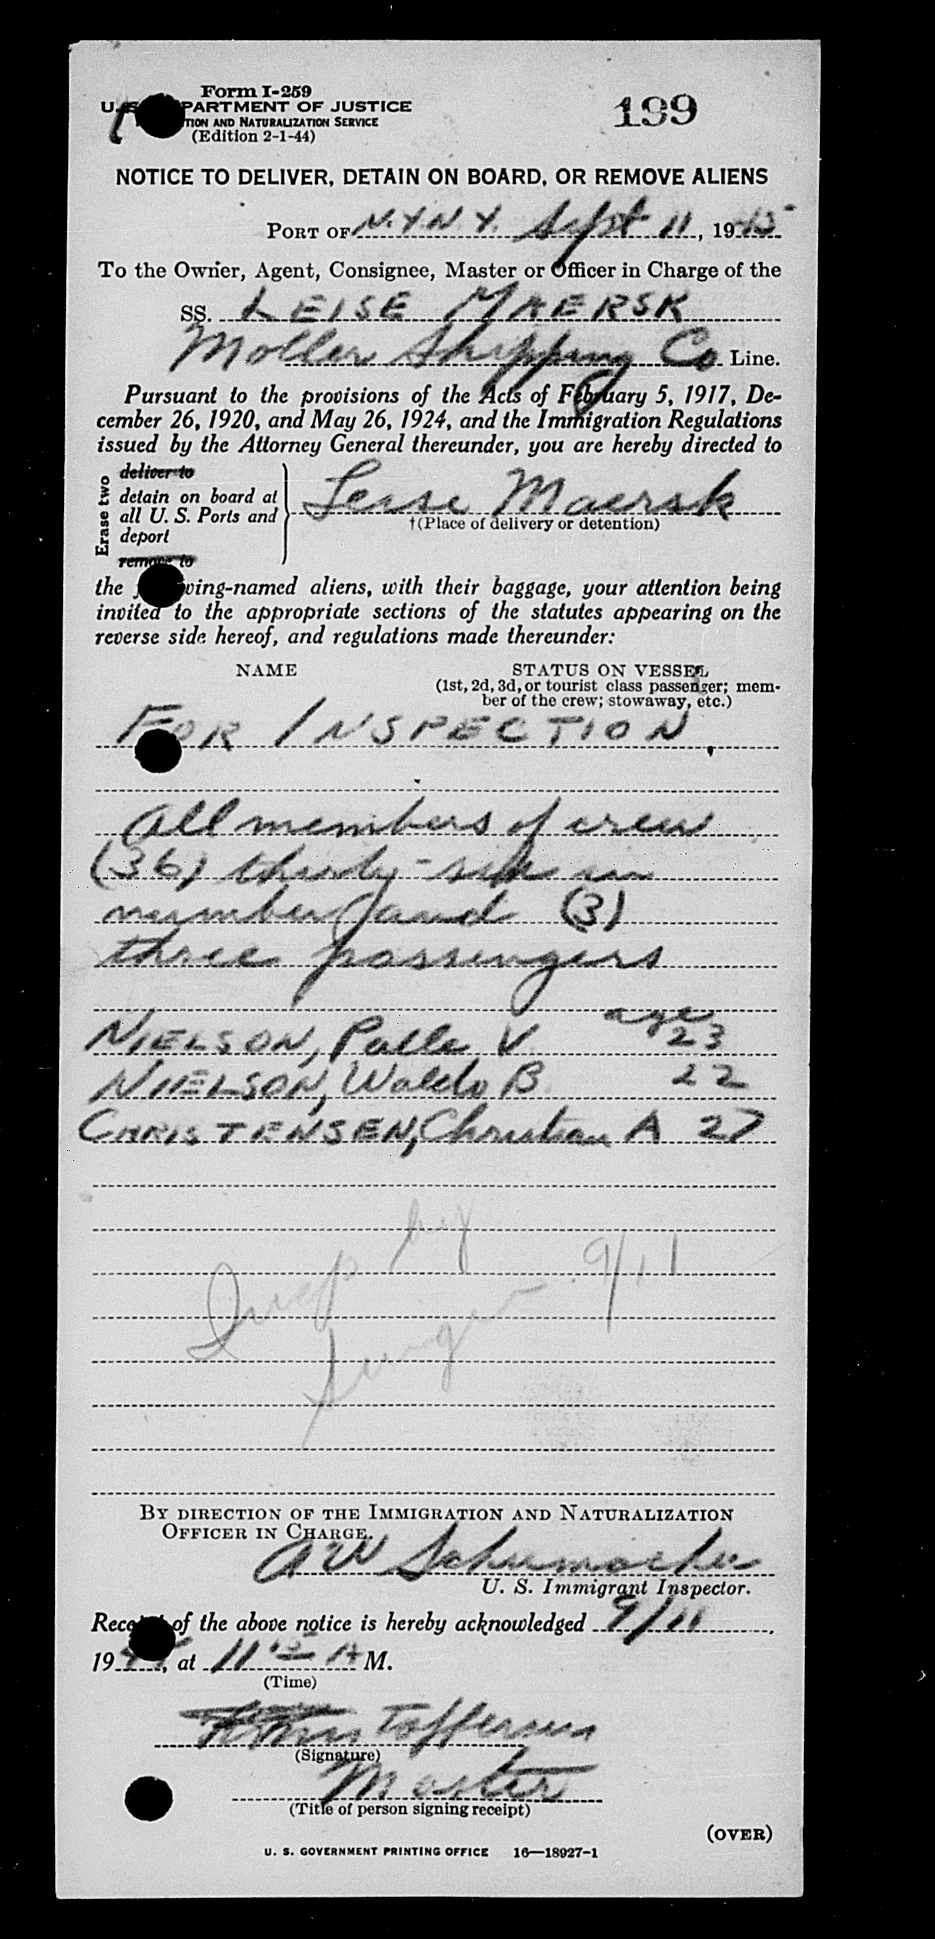 Form I-259
199
U. S. DEPARTMENT OF JUSTICE
TION AND NATURALIZATION SERVICE
(Edition 2-1-44)
NOTICE TO DELIVER, DETAIN ON BOARD, OR REMOVE ALIENS
PORT OF N.Y.N.Y. Sept 11, 1945
To the Owner, Agent, Consignee, Master or Officer in Charge of the
SS. LEISE MAERSK
Moller Shipping Co Line.
Pursuant to the provisions of the Acts of February 5, 1917, De-
cember 26, 1920, and May 26, 1924, and the Immigration Regulations
issued by the Attorney General thereunder, you are hereby directed to
Erase two
deliver to
detain on board at
all U. S. Ports and
deport
remove to
Leise Maersk
†(Place of delivery or detention)
the following-named aliens, with their baggage, your attention being
invited to the appropriate sections of the statutes appearing on the
reverse side hereof, and regulations made thereunder:
NAME STATUS ON VESSEL
(1st, 2d, 3d, or tourist class passenger; mem-
ber of the crew; stowaway, etc.)
FOR INSPECTION
All members of crew
(36) thirty-six in
number and (3)
three passengers
age
NIELSON, Palle V. 23
NIIELSON, Waldo B. 22
CHRISTENSEN, Christian A 27
Insp by 9/11
BY DIRECTION OF THE IMMIGRATION AND NATURALIZATION
OFFICER IN CHARGE.
AW Schumacher
U. S. Immigrant Inspector.
Receipt of the above notice is hereby acknowledged 9/11,
19, at 11 15 A M.
(Time)
(Signature)
Master
(Title of person signing receipt)
(OVER)
U. S. GOVERNMENT PRINTING OFFICE 16—18927-1